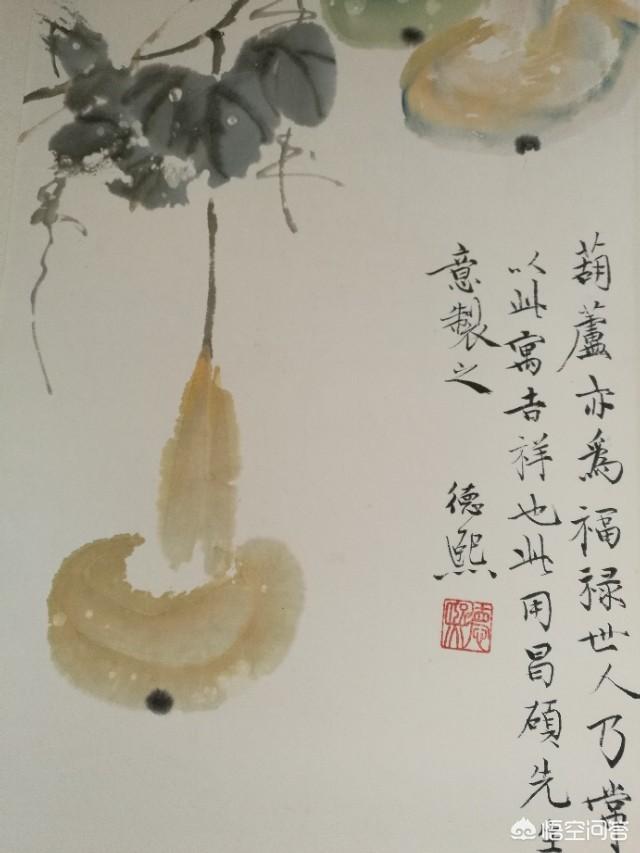 葫蘆亦為福禄世人乃常
以此寓吉祥也此用昌碩先生
意製之
德熙
德熙
悟空问答